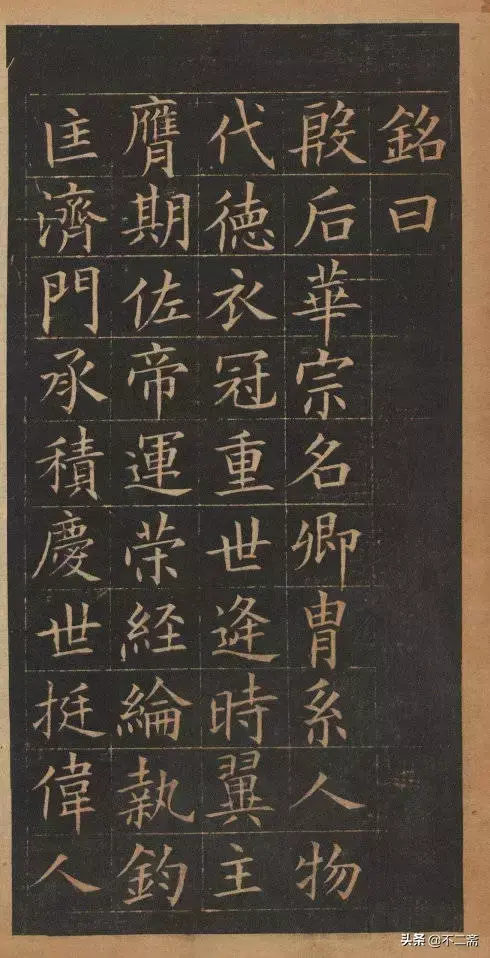 銘曰
殷后華宗名卿胄系人物
代德衣冠重世逄時翼主
膺期佐帝運荣経綸執鈞
匡濟門承積慶世挺偉人
头条 @不二斋